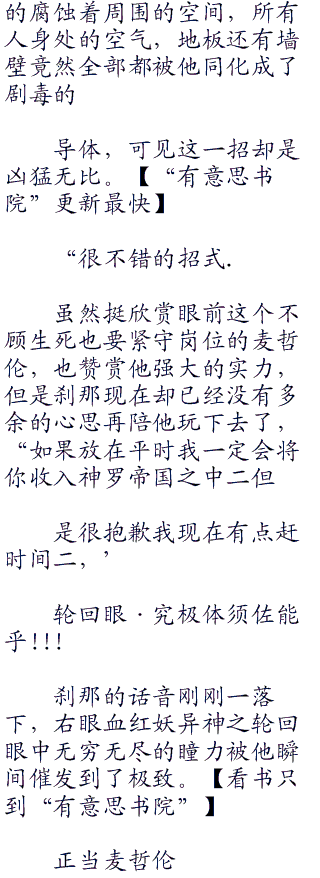 的腐蚀着周围的空间，所有
人身处的空气，地板还有墙
壁竟然全部都被他同化成了
剧毒的
导体，可见这一招却是
凶猛无比。【“有意思书
院”更新最快】
“很不错的招式.
虽然挺欣赏眼前这个不
顾生死也要紧守岗位的麦哲
伦，也赞赏他强大的实力，
但是刹那现在却已经没有多
余的心思再陪他玩下去了，
“如果放在平时我一定会将
你收入神罗帝国之中二但
是很抱歉我现在有点赶
时间二，’
轮回眼·究极体须佐能
乎!!!
刹那的话音刚刚一落
下，右眼血红妖异神之轮回
眼中无穷无尽的瞳力被他瞬
间催发到了极致。【看书只
到“有意思书院”】
正当麦哲伦